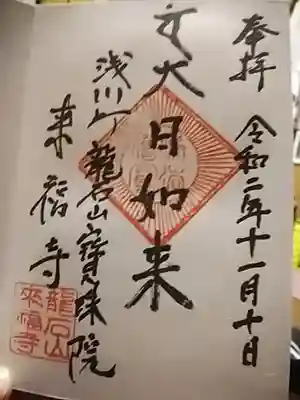 奉拝
令和二年十一月十日
大日如来
浅川 龍石山 寶珠院
来福寺
龍石山
來福寺